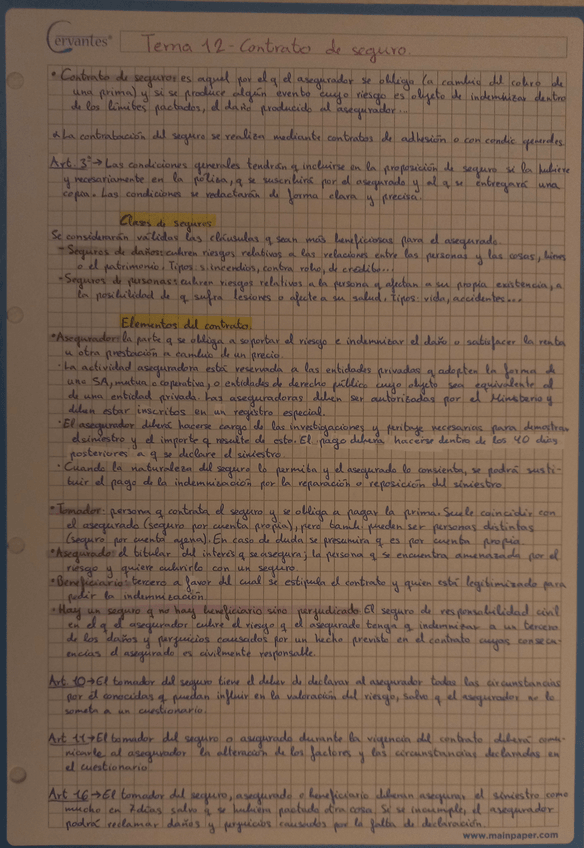 Cervantes®
Tema 12 - Contrato de seguro.
• Contrato de seguro: es aquel por el q el asegurador se obliga (a cambio del cobro de
una prima) y si se produce algún evento cuyo riesgo es objeto de indemnizar dentro
de los límites pactados, el daño producido al asegurador...
* La contratación del seguro se realiza mediante contratos de adhesión o con condic generales
Art. 3º → Las condiciones generales tendrán q incluirse en la proposición de seguro si la hubiere
y necesariamente en la póliza, q se suscribirá por el asegurado y al q se entregará una
copia. Las condiciones se redactarán de forma clara y precisa.
Clases de seguros
Se considerarán válidas las cláusulas q sean más beneficiosas para el asegurado.
- Seguros de daños: cubren riesgos relativos a las relaciones entre las personas y las cosas, bienes
o el patrimonio. Tipos: s. incendios, contra robo, de crédito...
- Seguros de personas: cubren riesgos relativos a la persona q afectan a su propia existencia, a
la posibilidad de q sufra lesiones o afecte a su salud. Tipos: vida, accidentes...
Elementos del contrato.
• Asegurador: la parte q se obliga a soportar el riesgo e indemnizar el daño o satisfacer la renta
u otra prestación a cambio de un precio.
· La actividad aseguradora está reservada a las entidades privadas q adopten la forma de
una SA, mutua o cooperativa, o entidades de derecho público cuyo objeto sea equivalente al
de una entidad privada. Las aseguradoras deben ser autorizadas por el Ministerio y
deben estar inscritos en un registro especial.
· El asegurador deberá hacerse cargo de las investigaciones y peritaje necesarios para demostrar
el siniestro y el importe q resulte de este. El pago deberá hacerse dentro de los 40 días
posteriores a q se declare el siniestro.
· Cuando la naturaleza del seguro lo permita y el asegurado lo consienta, se podrá susti-
tuir el pago de la indemnización por la reparación o reposición del siniestro.
• Tomador: persona q contrata el seguro y se obliga a pagar la prima. Suele coincidir con
el asegurado (seguro por cuenta propia), pero tamb. pueden ser personas distintas
(seguro por cuenta ajena). En caso de duda se presumirá q es por cuenta propia.
• Asegurado: el titular del interés q se asegura; la persona q se encuentra amenazada por el
riesgo y quiere cubrirlo con un seguro.
• Beneficiario: tercero a favor del cual se estipula el contrato y quien está legitimizado para
pedir la indemnización.
· Hay un seguro q no hay beneficiario sino perjudicado. El seguro de responsabilidad civil
en el q el asegurador cubre el riesgo q el asegurado tenga q indemnizar a un tercero
de los daños y perjuicios causados por un hecho previsto en el contrato cuyas consecu-
encias el asegurado es civilmente responsable.
Art 10 → El tomador del seguro tiene el deber de declarar al asegurador todas las circunstancias
por él conocidas q puedan influir en la valoración del riesgo, salvo q el asegurador no lo
someta a un cuestionario.
Art 11 → El tomador del seguro o asegurado durante la vigencia del contrato deberá comu-
nicarle al asegurador la alteración de los factores y las circunstancias declaradas en
el cuestionario.
Art 16 → El tomador del seguro, asegurado o beneficiario deberán asegurar el siniestro como
mucho en 7 días salvo q se hubiera pactado otra cosa. Si se incumple, el asegurador
podrá reclamar daños y perjuicios causados por la falta de declaración.
www.mainpaper.com